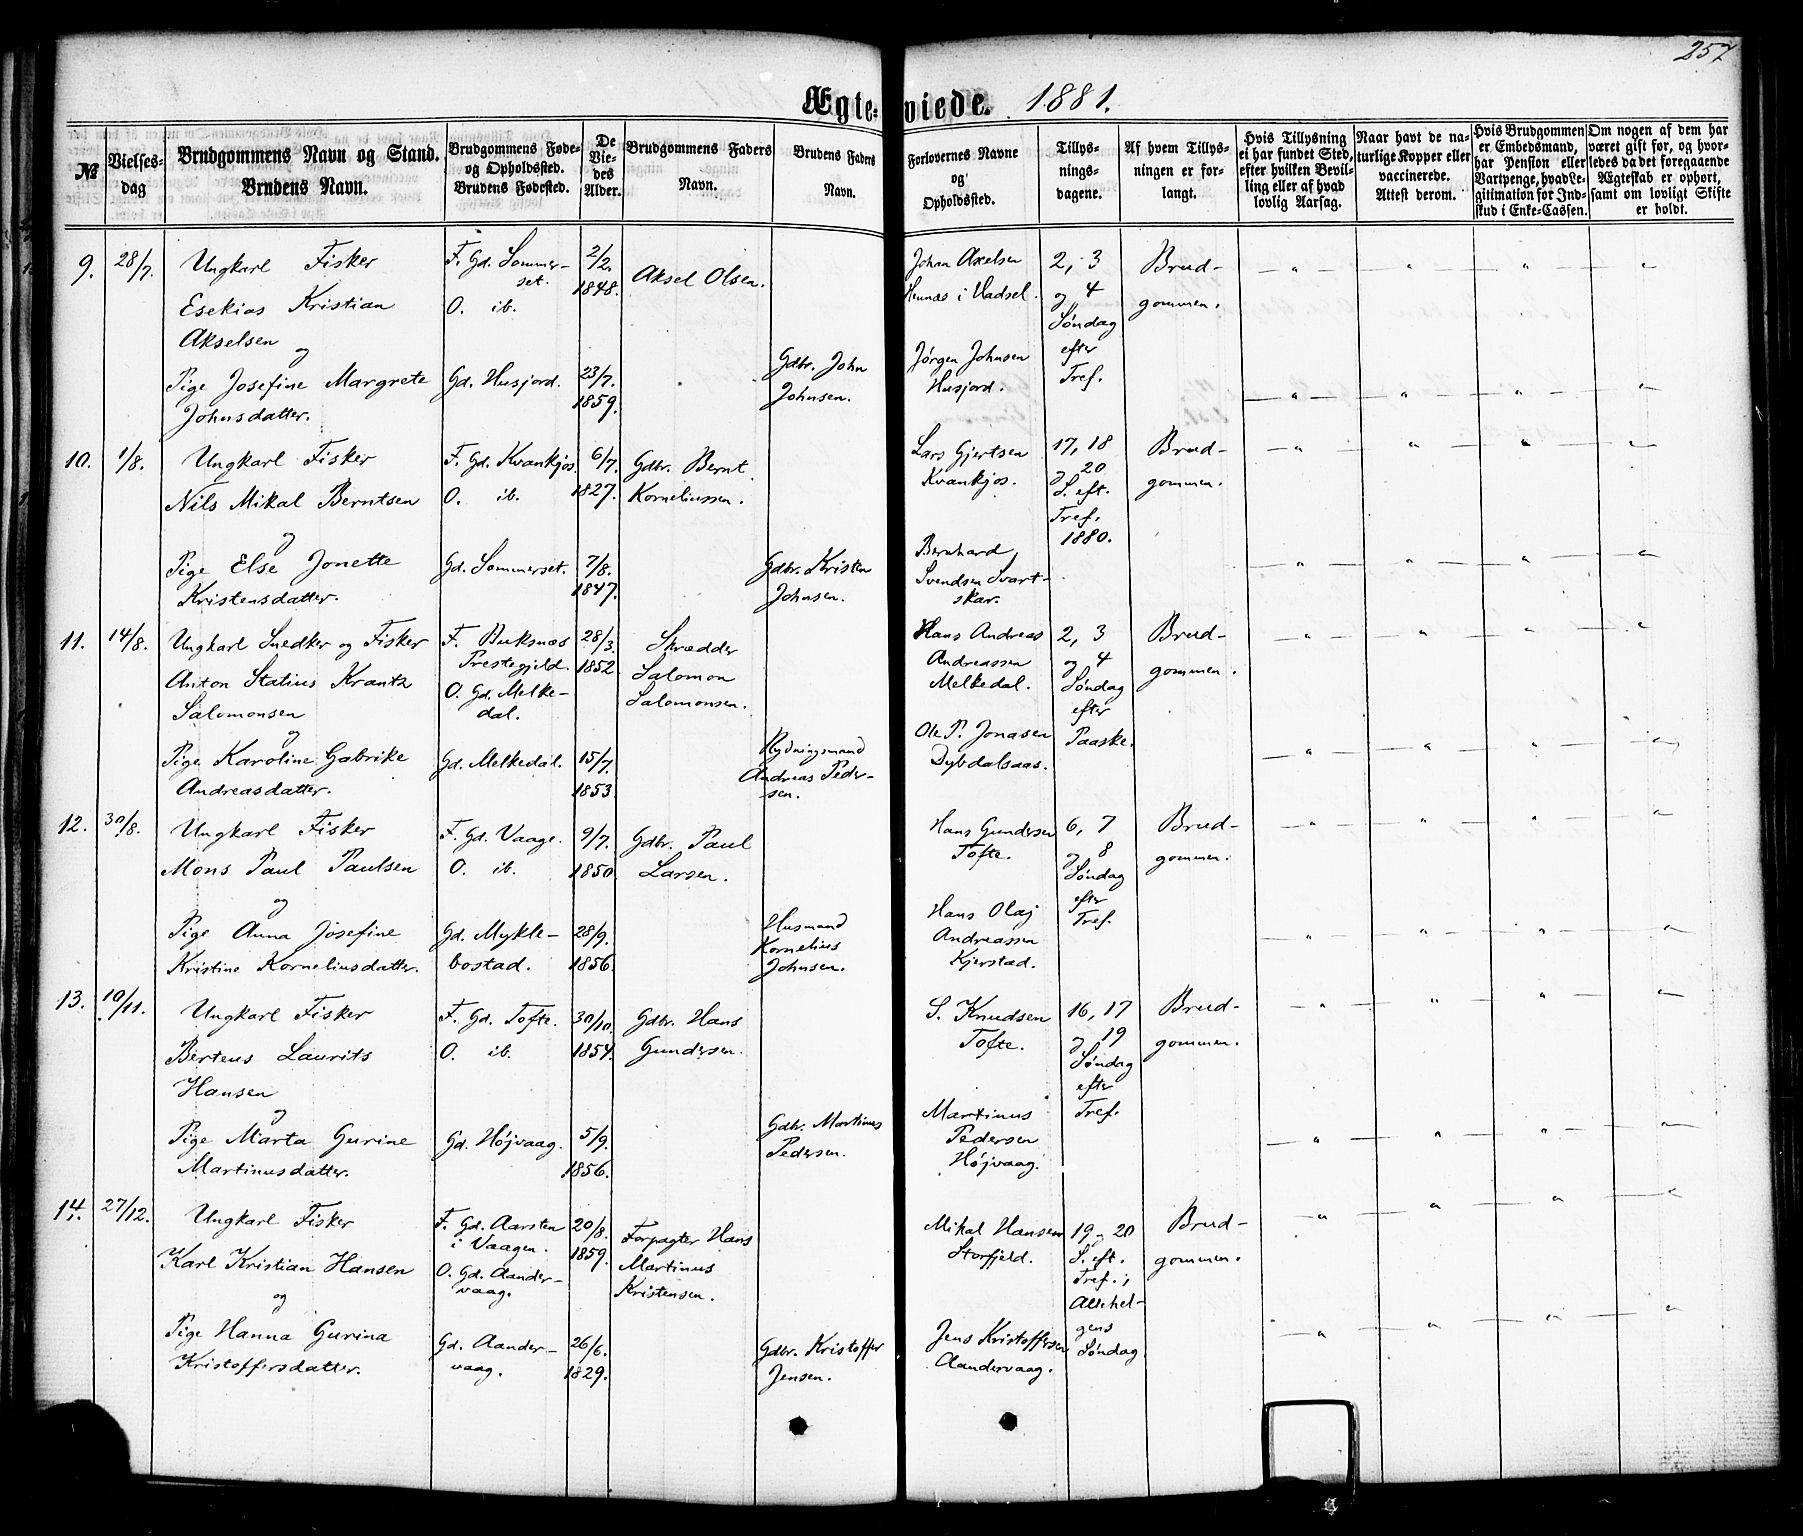 257
Ægteviede. 1881.
№
Vielses-
dag
Brudgommens Navn og Stand.
Brudens Navn.
Brudgommens Føde-
og Opholdssted.
Brudens Fødested.
De
Vie-
des
Alder.
Brudgommens Faders
Navn.
Brudens Faders
Navn.
Forlovernes Navne
og
Opholdssted.
Tillys-
nings-
dagene.
Af hvem Tillys-
ningen er for-
langt.
Hvis Tillysning
ei har fundet Sted,
efter hvilken Bevil-
ling eller af hvad
lovlig Aarsag.
Naar havt de na-
turlige Kopper eller
vaccinerede.
Attest derom.
Hvis Brudgommen
er Embedsmand,
har Pension eller
Vartpenge, hvad Le-
gitimation for Ind-
skud i Enke-Cassen.
Om nogen af dem har
været gift for, og hvor-
ledes da det foregaaende
Ægteskab er ophørt,
samt om lovligt Skifte
er holdt.
9. 28/7.
Ungkarl Fisker
Esekias Kristian
Akselsen
og
Pige Josefine Margrete
Johnsdatter.
F. Gd. Sommer-
set.
O. ib.
Gd. Husjord.
2/2.
1848.
23/7.
1859.
Aksel Olsen.
Gdbr. John
Johnsen.
Johan Axelsen
Hennæs i Hadsel.
Jørgen Johnsen
Husjord.
2, 3
og 4
Søndag
efter
Tref.
Brud-
gommen.
10. 1/8.
Ungkarl Fisker
Nils Mikal Berntsen
og
Pige Else Jonette
Kristensdatter.
F. Gd. Kvankjos.
O. ib.
Gd. Sommerset.
6/7.
1827.
7/8.
1847.
Gdbr. Bernt
Korneliussen.
Gdbr. Kristen
Johnsen.
Lars Gjertsen
Kvankjos.
Bernhard
Svendsen Svart-
skar.
17, 18
og 20
S. eft.
Tref.
1880.
Brud-
gommen.
11. 14/8.
Ungkarl Snedker og Fisker
Anton Statius Krantz
Salomonsen
og
Pige Karoline Gabrike
Andreasdatter.
F. Buksnæs
Prestegjeld.
O. Gd. Melke-
dal.
Gd. Melkedal.
28/3.
1852.
15/7.
1853
Skrædder
Salomon
Salomonsen.
Rydningsmand
Andreas Peder-
sen.
Hans Andreas
Andreassen
Melkedal.
Ole P. Jonasen
Dybdalsaas.
2, 3
og 4
Søndag
efter
Paaske.
Brud-
gommen.
12. 30/8.
Ungkarl Fisker
Mons Paul Paulsen
og
Pige Anna Josefine
Kristine Korneliusdatter.
F. Gd. Vaage.
O. ib.
Gd. Mykle-
bostad.
9/7.
1850.
28/9.
1856.
Gdbr. Paul
Larsen.
Husmand
Kornelius
Johnsen.
Hans Gundersen
Tofte.
Hans Olaj
Andreassen
Kjerstad.
6, 7
og 8
Søndag
efter
Tref.
Brud-
gommen.
13. 10/11.
Ungkarl Fisker
Bertens Laurits
Hansen
og
Pige Marta Gurine
Martinusdatter.
F. Gd. Tofte.
O. ib.
Gd. Højvaag.
30/10.
1854.
5/9.
1856.
Gdbr. Hans
Gundersen.
Gdbr. Martinus
Pedersen.
S. Knudsen
Tofte.
Martinus
Pedersen
Højvaag.
16, 17
og 19
Søndag
efter
Tref.
Brud-
gommen.
14. 27/12.
Ungkarl Fisker
Karl Kristian Hansen
og
Pige Hanna Gurina
Kristoffersdatter.
F. Gd. Aarsten
i Vaagen.
O. Gd. Aander-
vaag.
Gd. Aander-
vaag.
20/8.
1859.
26/6.
1829.
Forpagter Hans
Martinus
Kristensen.
Gdbr. Kristoffer
Jensen.
Mikal Hansen
Storfjeld.
Jens Kristoffersen
Aandervaag.
19 og 20
S. eft.
Tref.;
Allehel-
gens
Søndag
Brud-
gommen.